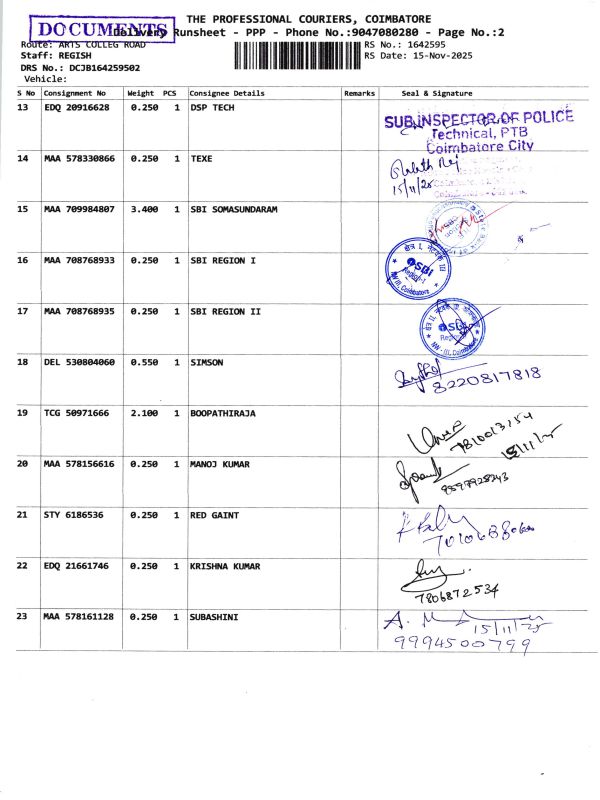 THE PROFESSIONAL COURIERS, COIMBATORE
DOCUMENTS
Delivery Runsheet - PPP - Phone No.:9047080280 - Page No.:2
Route: ARTS COLLEG ROAD
RS No.: 1642595
Staff: REGISH
RS Date: 15-Nov-2025
DRS No.: DCJB164259502
Vehicle:
S No Consignment No Weight PCS Consignee Details Remarks Seal & Signature
13 EDQ 20916628 0.250 1 DSP TECH
SUB.INSPECTOR OF POLICE
Technical, PTB
Coimbatore City
14 MAA 578330866 0.250 1 TEXE
15/11/25
15 MAA 709984807 3.400 1 SBI SOMASUNDARAM
16 MAA 708768933 0.250 1 SBI REGION I
SBI
Region-I
NW III, Coimbatore
17 MAA 708768935 0.250 1 SBI REGION II
SBI
NW - III, Coimbatore
18 DEL 530804060 0.550 1 SIMSON
8220817818
19 TCG 50971666 2.100 1 BOOPATHIRAJA
7810013154
15/11/25
20 MAA 578156616 0.250 1 MANOJ KUMAR
21 STY 6186536 0.250 1 RED GAINT
22 EDQ 21661746 0.250 1 KRISHNA KUMAR
7806872534
23 MAA 578161128 0.250 1 SUBASHINI
15/11/25
9994500799